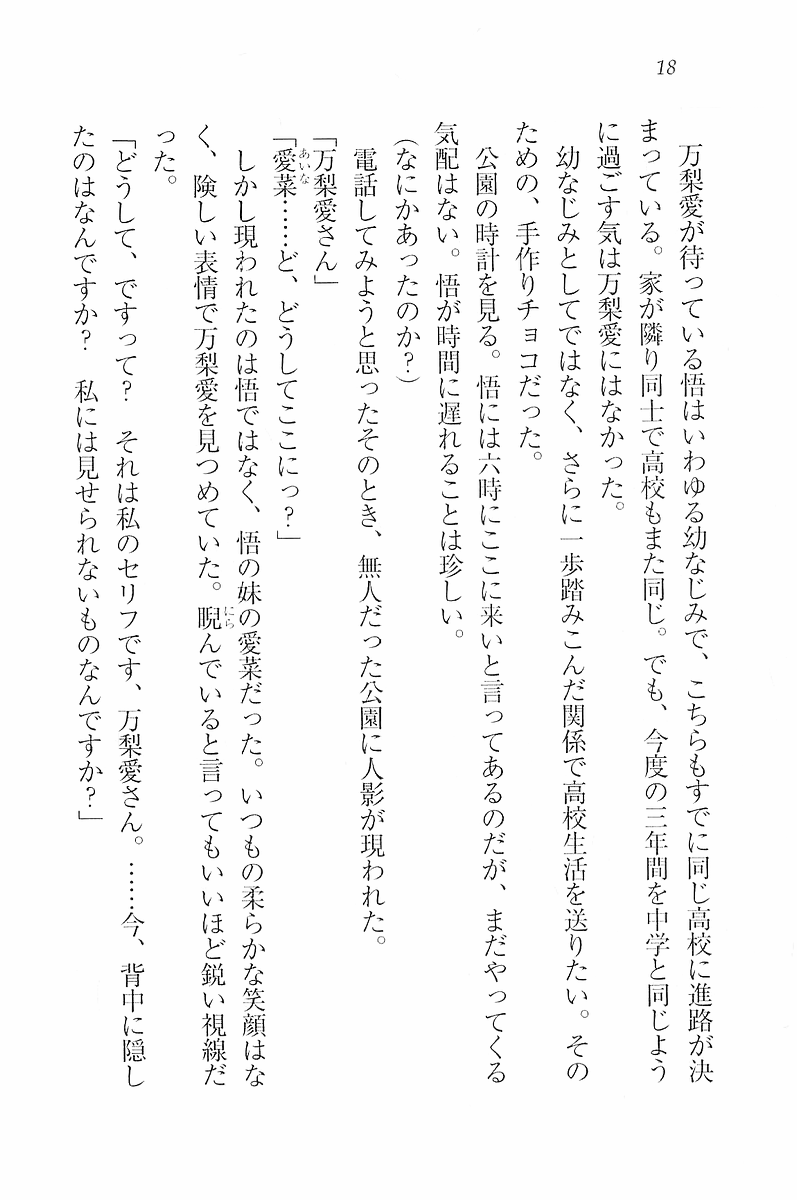 18
万梨愛が待っている悟はいわゆる幼なじみで、こちらもすでに同じ高校に進路が決
まっている。家が隣り同士で高校もまた同じ。でも、今度の三年間を中学と同じよう
に過ごす気は万梨愛にはなかった。
幼なじみとしてではなく、さらに一歩踏みこんだ関係で高校生活を送りたい。その
ための、手作りチョコだった。
公園の時計を見る。悟には六時にここに来いと言ってあるのだが、まだやってくる
気配はない。悟が時間に遅れることは珍しい。
(なにかあったのか?)
電話してみようと思ったそのとき、無人だった公園に人影が現われた。
「万梨愛さん」
「愛菜……ど、どうしてここにっ?」
しかし現われたのは悟ではなく、悟の妹の愛菜だった。いつもの柔らかな笑顔はな
く、険しい表情で万梨愛を見つめていた。睨んでいると言ってもいいほど鋭い視線だ
った。
「どうして、ですって? それは私のセリフです、万梨愛さん。……今、背中に隠し
たのはなんですか? 私には見せられないものなんですか?」